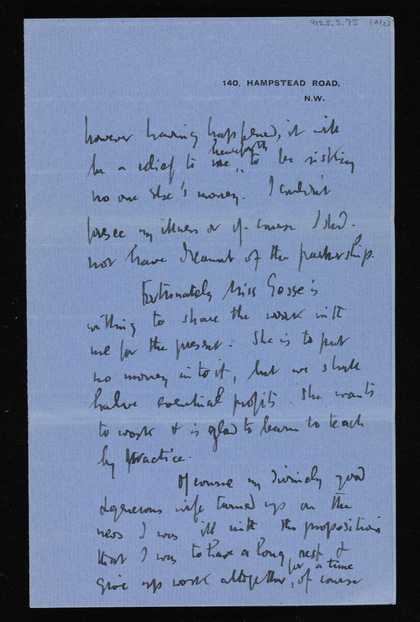 140, HAMPSTEAD ROAD,
N.W.
however having happened, it will
be a relief to me, henceforth, to be risking
no one else's money. I couldn't
foresee my illness or of course I shd.
not have dreamt of the partnership.
Fortunately Miss Gosse is
willing to share the work with
me for the present. She is to put
no money into it, but we shall
halve eventual profits. She wants
to work & is glad to learn to teach
by practice.
Of course my divinely good
& generous wife turned up on the
news I was ill with the proposition
that I was to have a long rest &
give up work altogether, for a time, of course